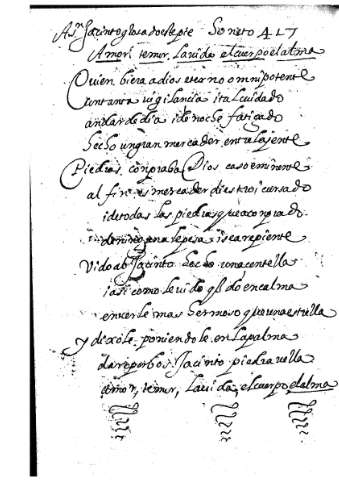 A sn Jacinto glosa de este pie Soneto 417
Amor, temor, la vida el cuerpo el alma
Quien biera a dios eterno omnipotente
tanta vigilancia i tal cuidado
andar de dia i de noche fatigado
hecho un gran mercader entre la jente
Piedras compraba Dios caso eminente
al fin mercader diestro i cursado
i de todas las piedras que a conprado
ninguna le pesa i se arrepiente
Vido a Jacinto hecho una centella
i asi como le vido qdo en calma
en verle mas hermoso que una estrella
y dixole poniendole en la palma
dare por bos Jacinto piedra vella
amor, temor, la vida, el cuerpo, el alma